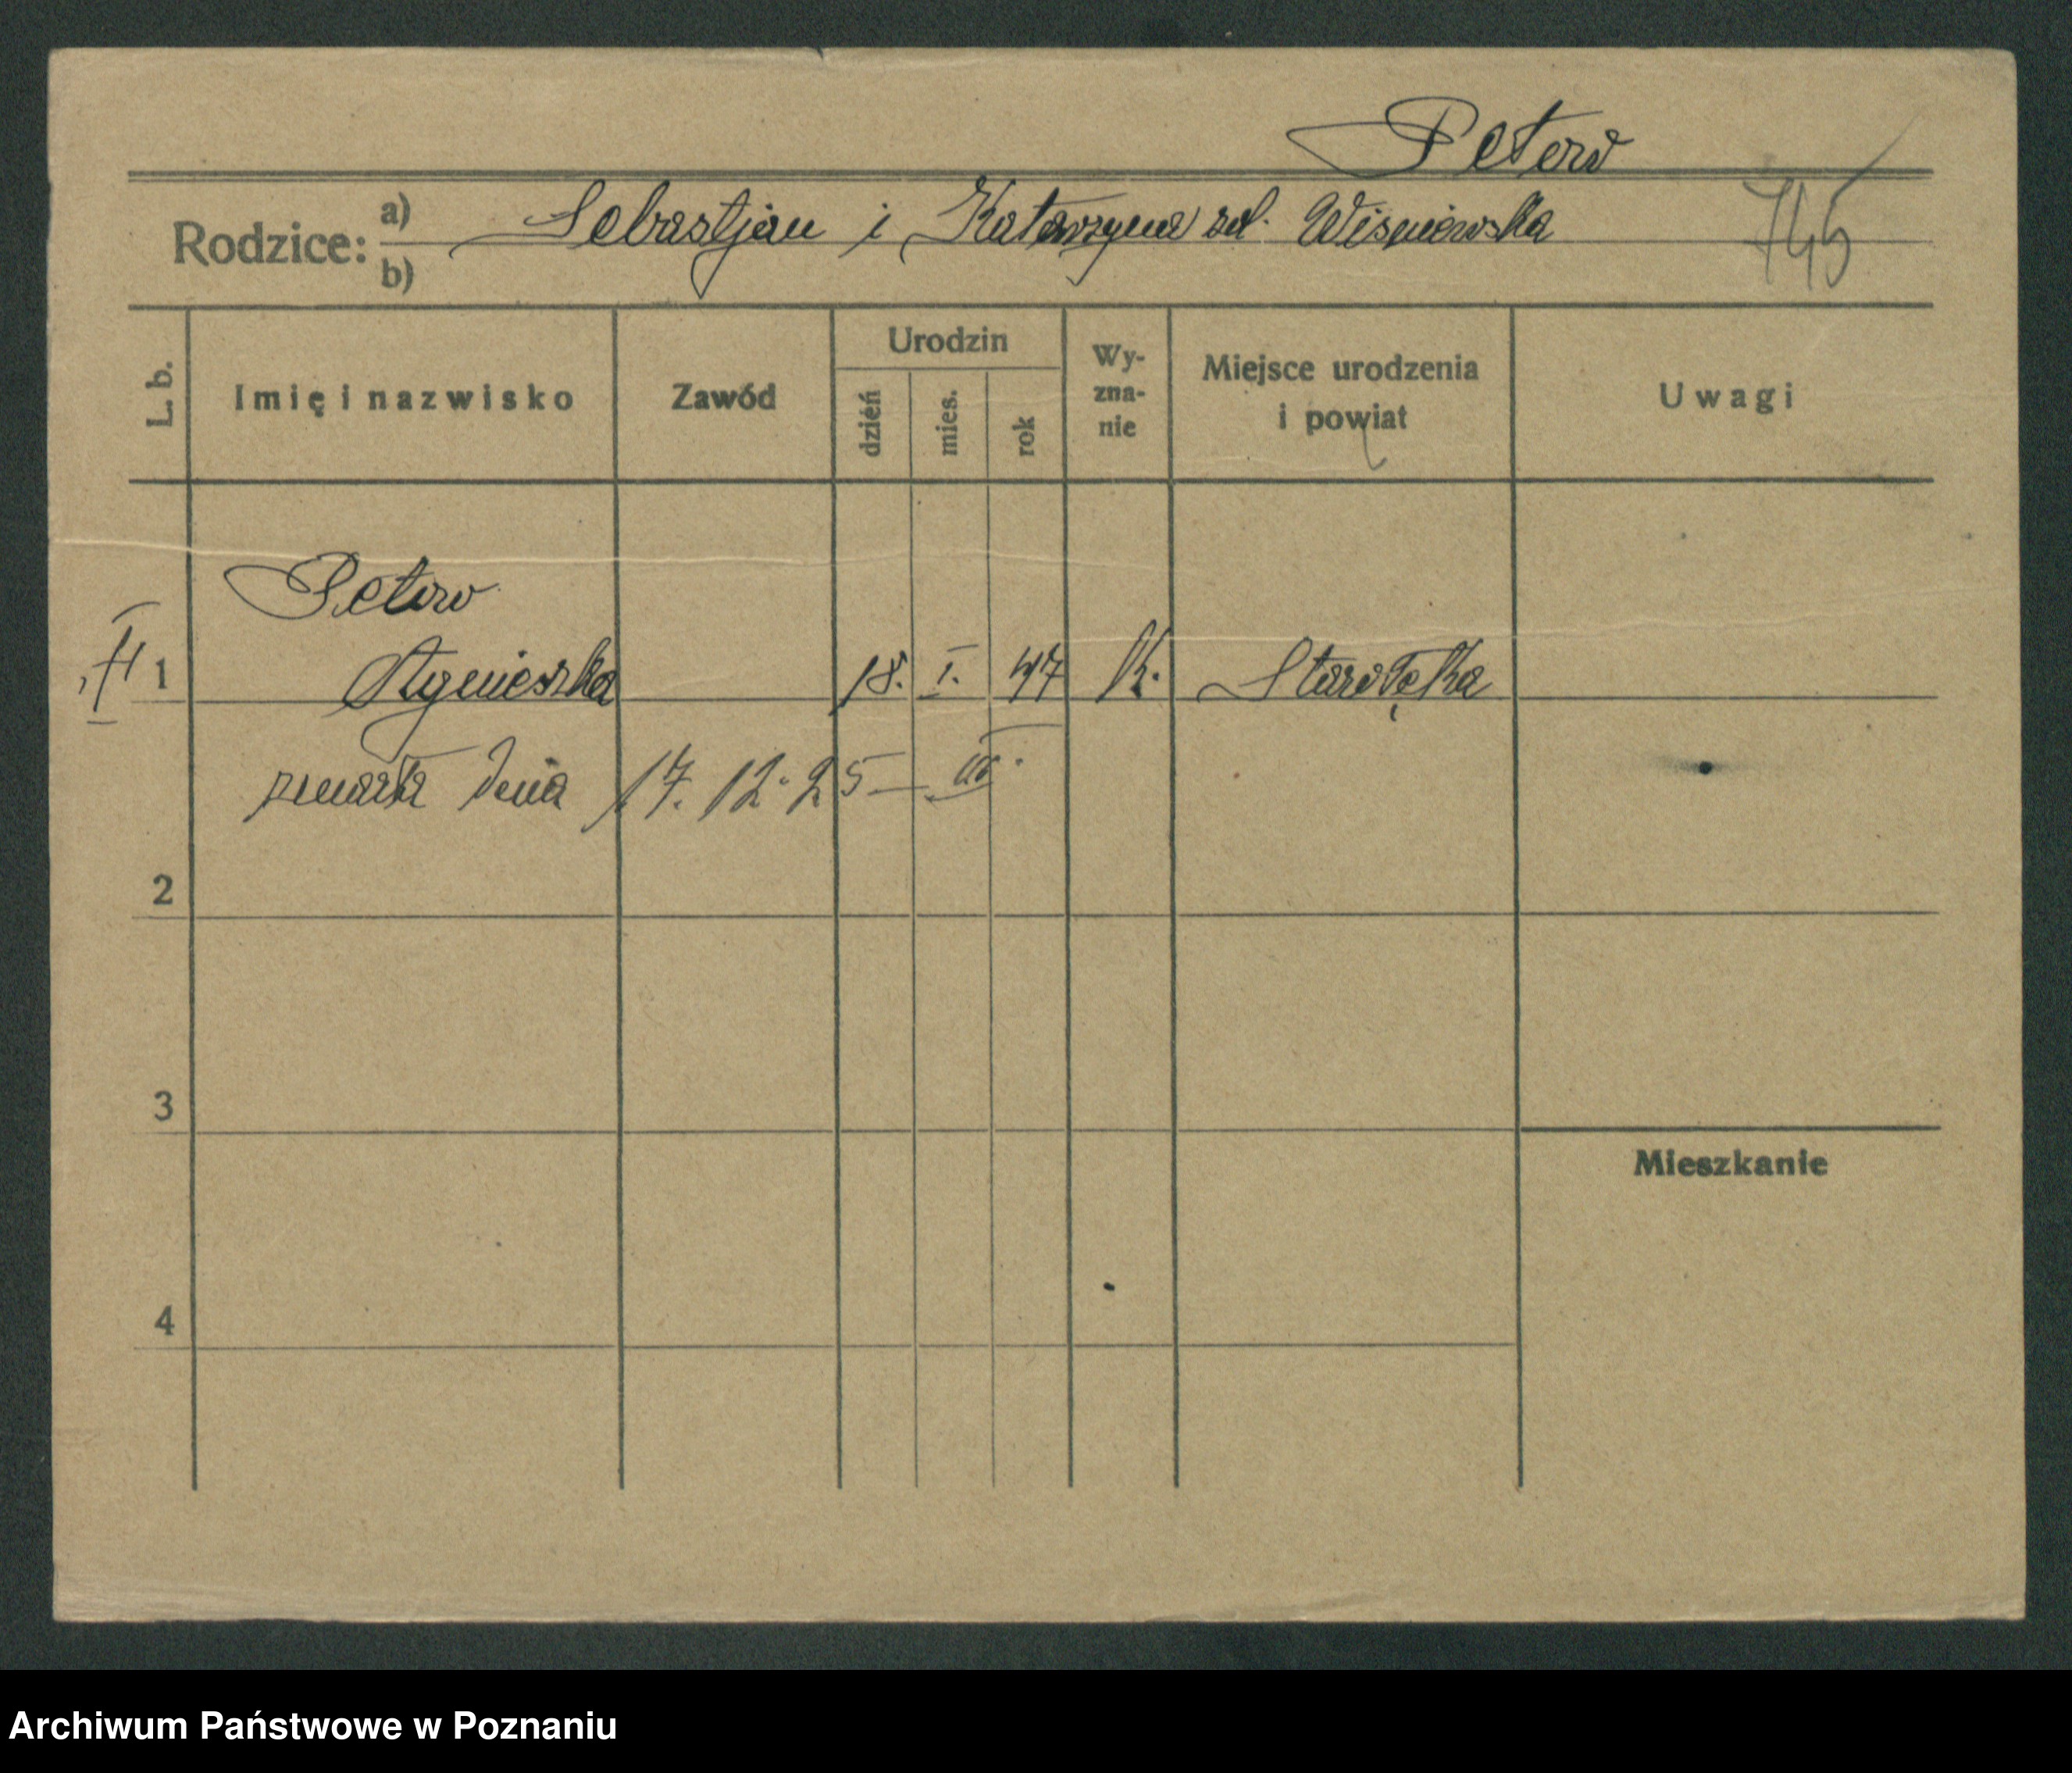 Peterw
Rodzice: a) b) Sebastjan i Katarzyna zd. Wiśniewska
745
L. b. Imię i nazwisko Zawód Urodzin dzień mies. rok Wy-zna-nie Miejsce urodzenia i powiat Uwagi
Peterw
1 Agnieszka 18. I. 47 K. Starołęka
zmarła dnia 17. 12. 25 –
2
3
Mieszkanie
4
Archiwum Państwowe w Poznaniu